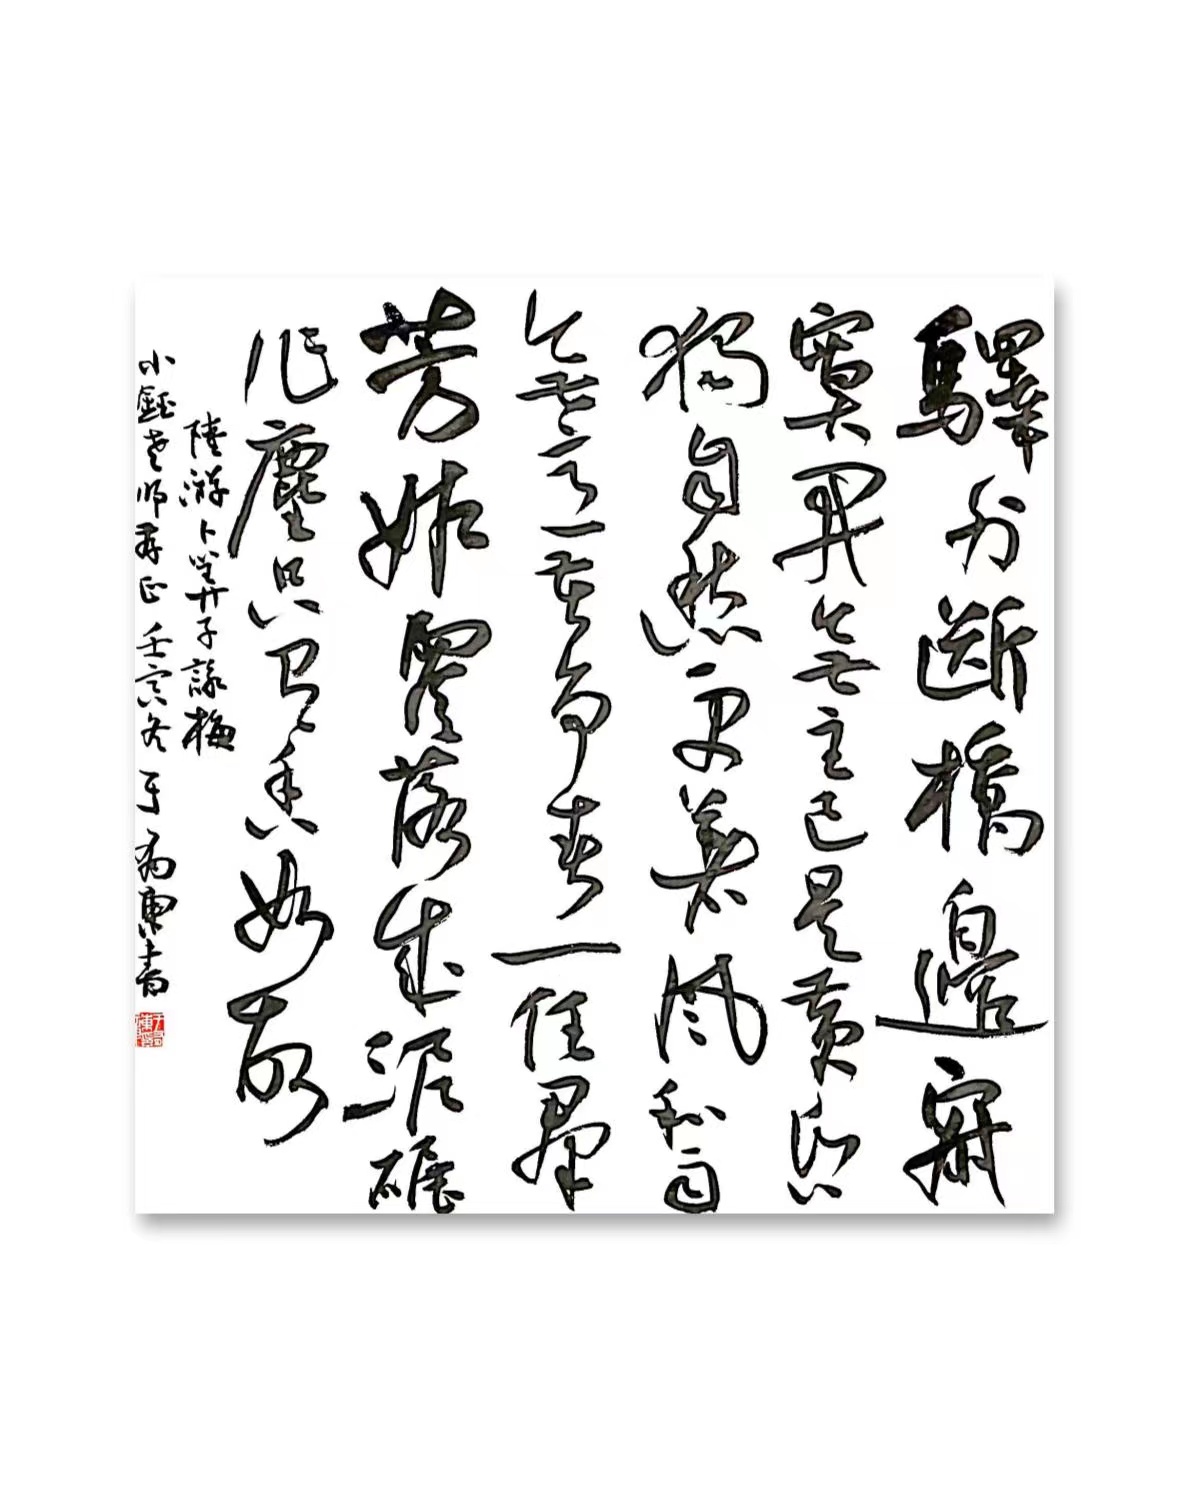 驛外斷橋邊寂
寞開無主已是黄昏
獨自愁更著風和雨
無意苦爭春一任羣
芳妒零落成泥碾
作塵只有香如故
陸游卜算子詠梅
小鈺老師存正壬寅冬于為東書